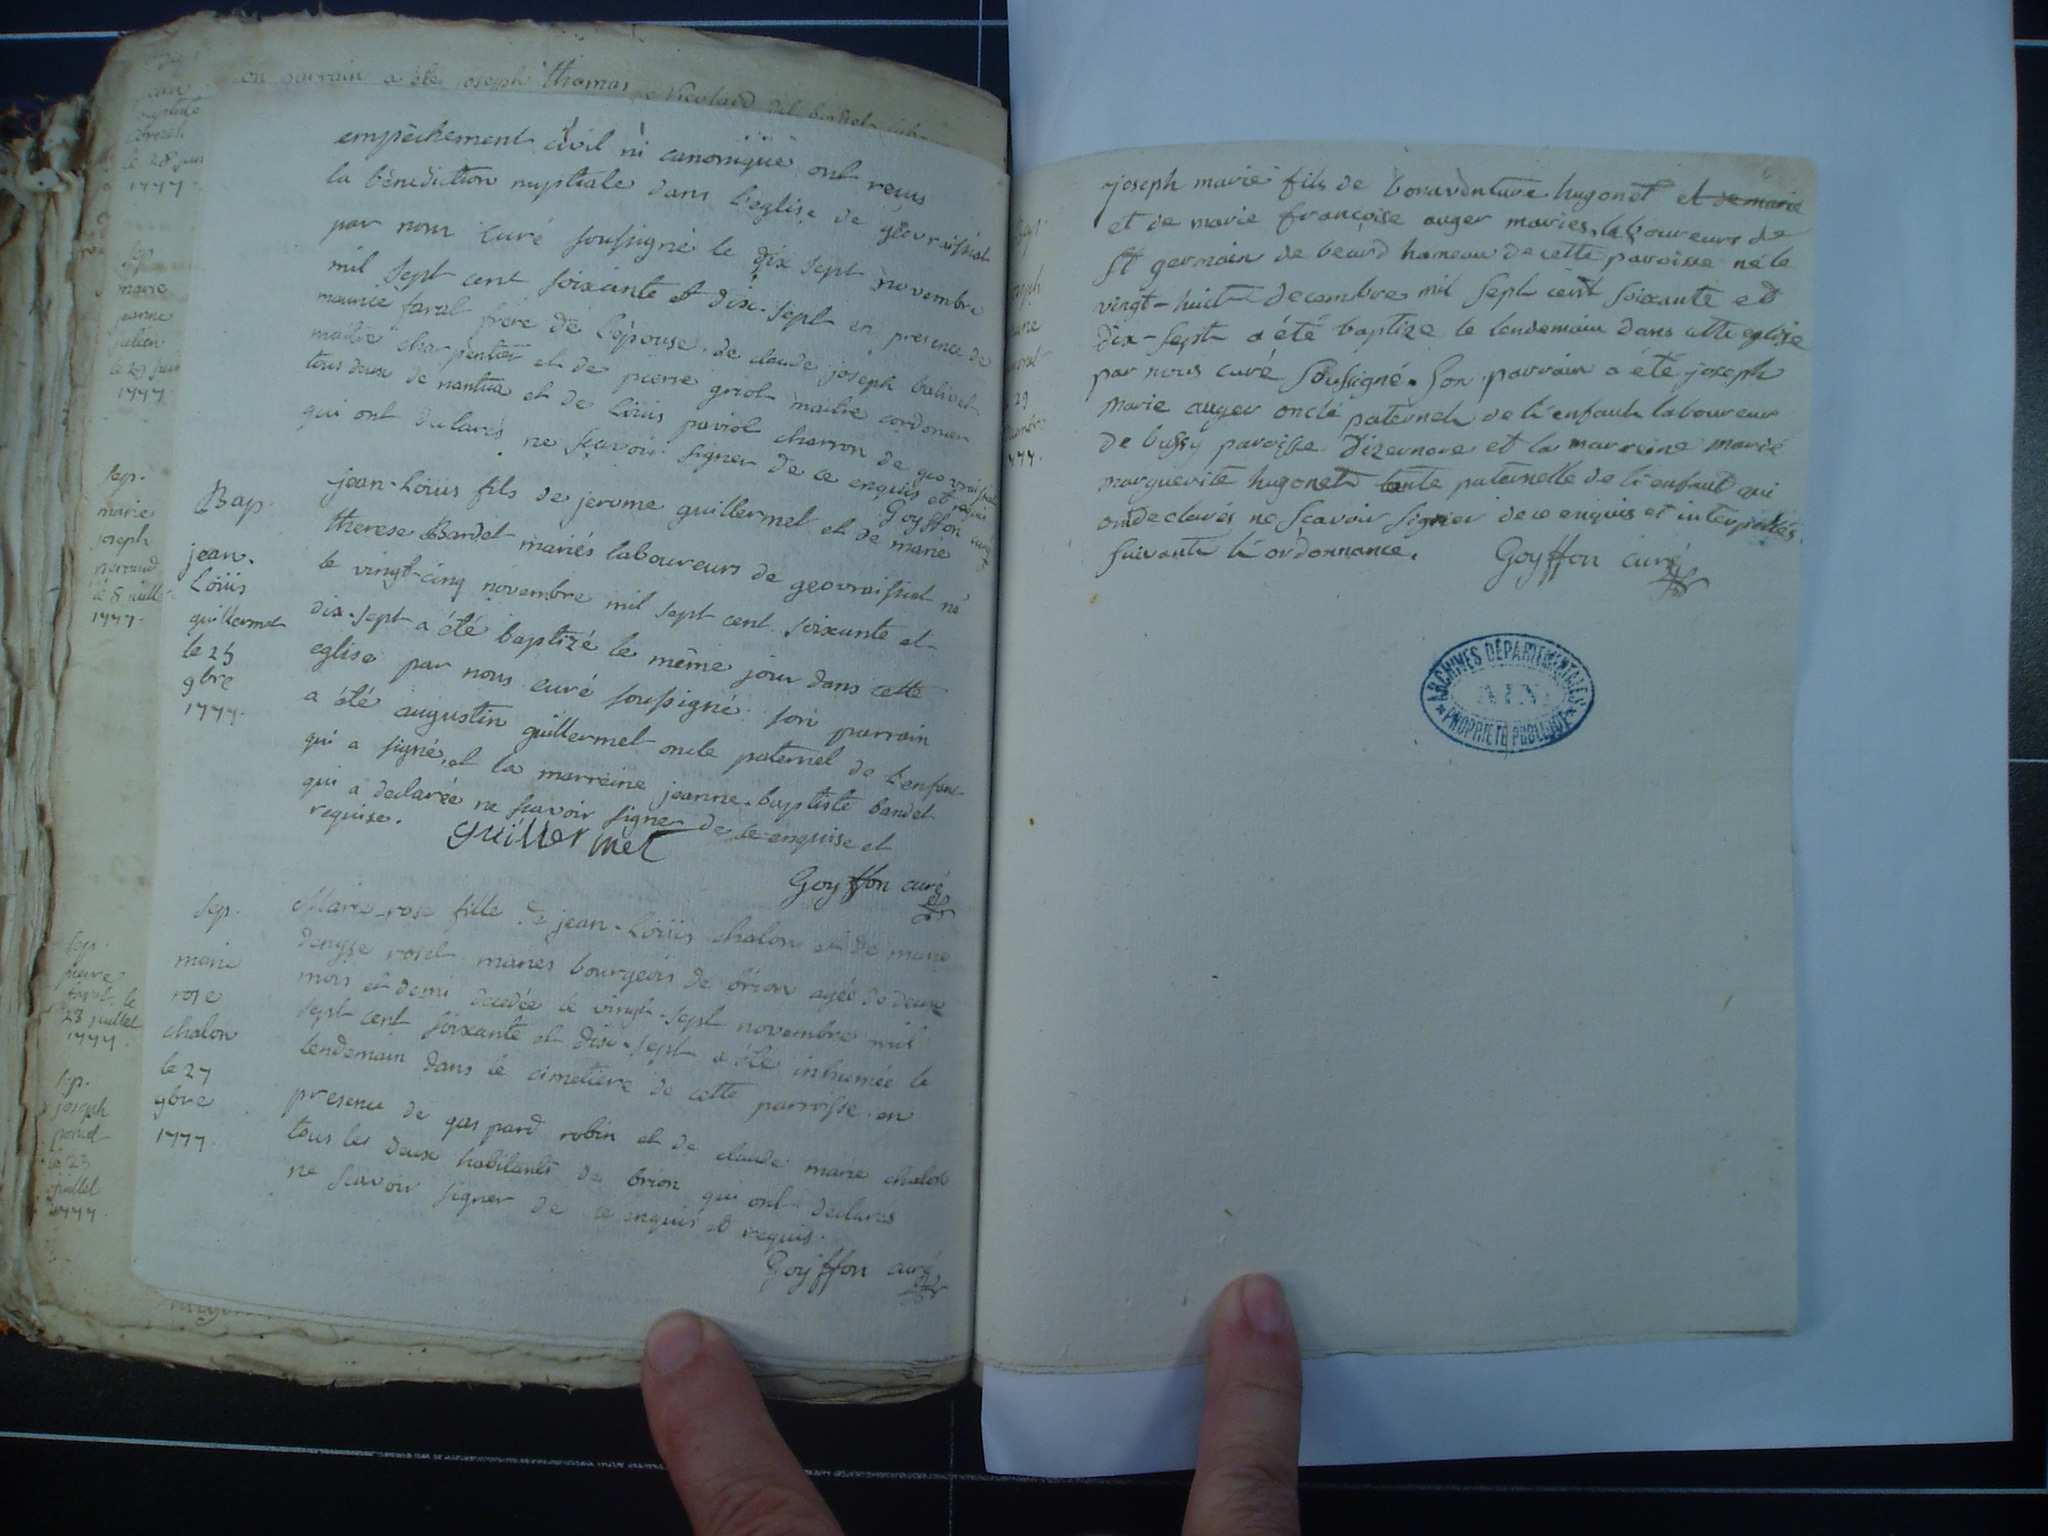 on parrain a été joseph thomas
empêchement civil ni canonique ont reçus
la bénédiction nuptiale dans l'eglise de géovraissiat
par nous curé soussigné le dix sept novembre
mil sept cent soixante et dix-sept en presence de
maurice faral frère de l'épouse, de claude joseph balivet
maitre charpentier et de pierre griot maitre cordonier
tous deux de nantua et de Loüis paviot charron de geovraissiat
qui ont déclarés ne scavoir signer de ce enquis et requis
Goyffon curé
Bap.
jean-
Loüis
guillermet
le 25
9bre
1777.
jean-Loüis fils de jerome guillermet et de marie
therese Bardet mariés laboureurs de geovraissiat né
le vingt-cinq novembre mil sept cent soixante et
dix-sept a été baptizé le même jour dans cette
eglise par nous curé soussigné son parrain
a été augustin guillermet oncle paternel de l'enfant
qui a signé, et la marreine jeanne-baptiste bardet
qui a declarée ne scavoir signer de ce enquise et
requise.
guillermet
Goyffon curé
Sep.
marie
rose
chalon
le 27
9bre
1777.
Marie-rose fille de jean-Loüis chalon et de marie
denyse roset mariés bourgeois de brion agée de deux
mois et demi decedée le vingt-sept novembre mil
sept cent soixante et dix-sept a été inhumée le
lendemain dans le cimetiere de cette parroisse en
presence de gaspard robin et de claude marie chalon
tous les deux habitants de brion qui ont declarés
ne scavoir signer de ce enquis et requis.
Goyffon curé
Sep.
marie
joseph
le 8 juillet
1777.
le 29 juin
1777.
Sep.
23 juillet
1777
Sep.
joseph
le 23
juillet
1777.
joseph marie fils de bonaventure hugonet et de marie
et de marie françoise auger mariés, laboureurs de
St germain de beard hameau de cette paroisse né le
vingt-huit decembre mil sept cent soixante et
dix-sept a été baptize le lendemain dans cette eglise
par nous curé soussigné. Son parrain a été joseph
marie auger oncle paternel de l'enfant laboureur
de bussy paroisse d'izernore et la marreine marie
marguerite hugonet tante paternelle de l'enfant qui
ont declarés ne scavoir signer de ce enquis et interpellés
suivant l'ordonnance.
Goyffon curé
ARCHIVES DÉPARTEMENTALES
AIN
PROPRIÉTÉ PUBLIQUE